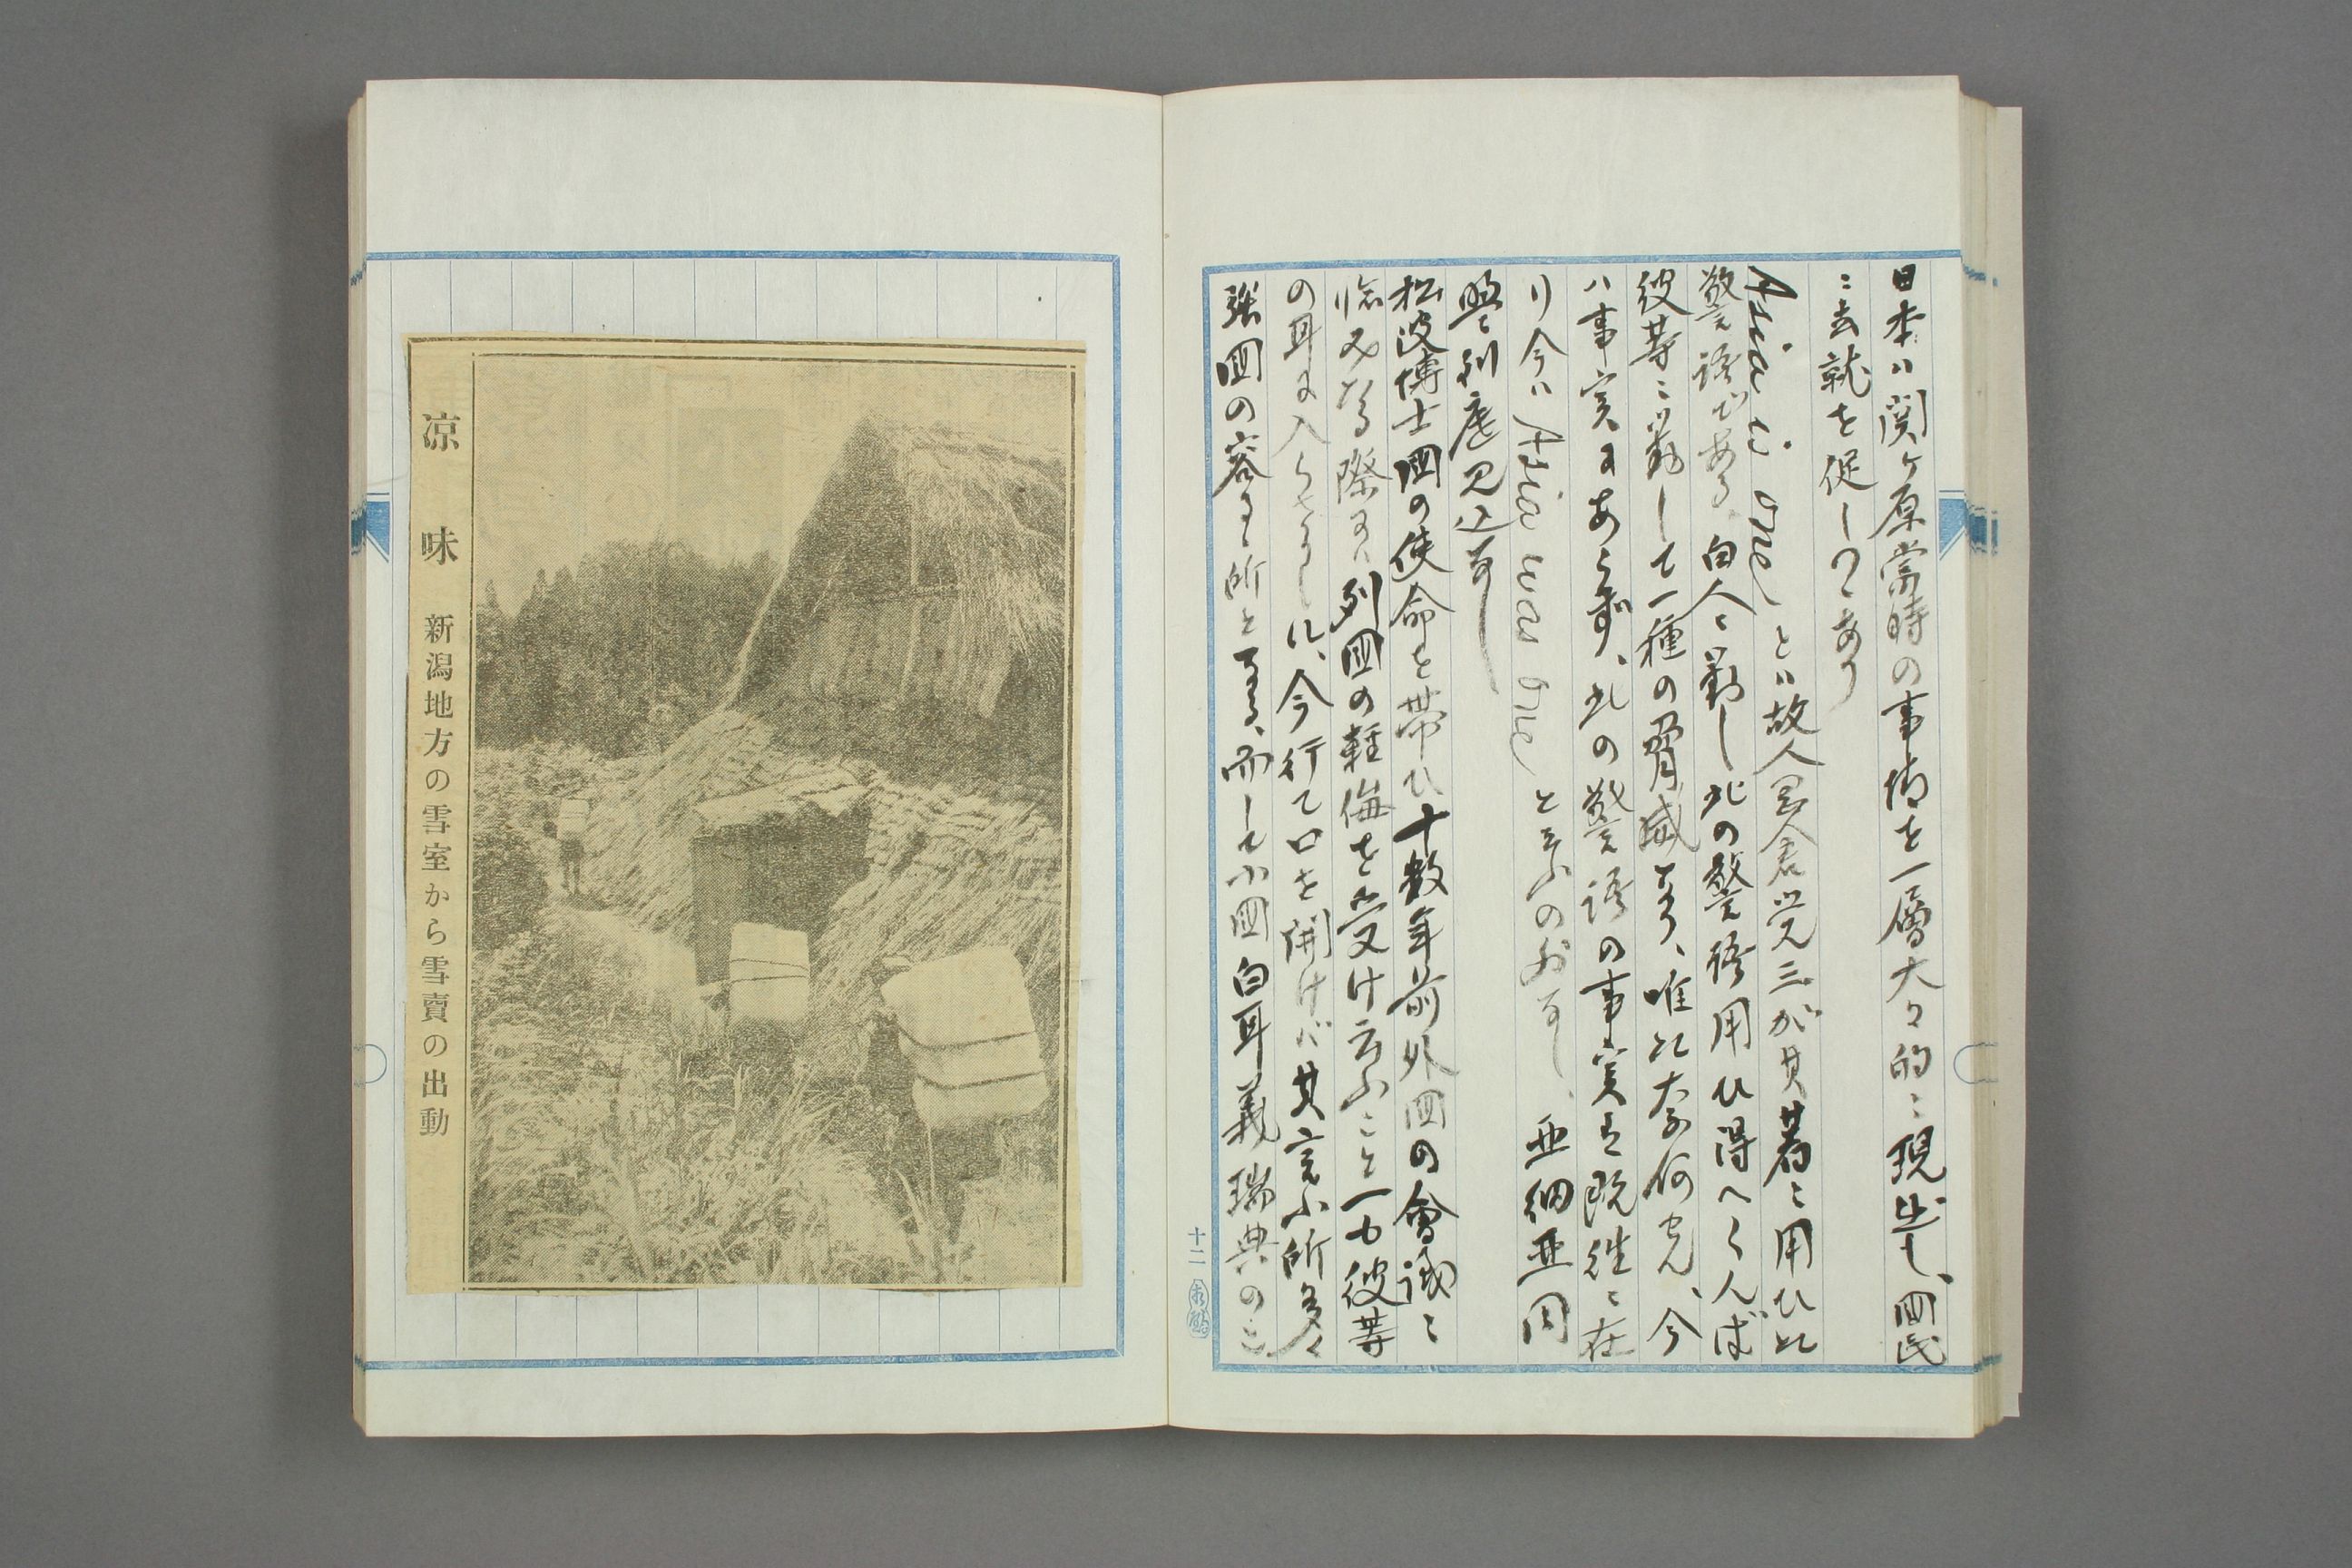 日本ハ関ケ原當時の事情を一層大々的ニ現出し、國民
ニ去就を促しつゝあり
Asia is one とハ故人岡倉覚三が其著ニ用ひた
警語である、白人ニ對し此の警語用ひ得へくんば
彼等ニ對して一種の脅威なり、唯た奈何せん、今
ハ事実にあらず、此の警語の事実は既往ニ在
り今ハ Asia was one と云ふの外なし、亜細亜同
盟ハ到底見込なし
松波博士國の使命を帯ひ十数年前外國の會議ニ
臨みたる際にハ列國の軽侮を受け云ふこと一も彼等
の耳に入らさりしに、今行て口を開けば其言ふ所多々
強國の容るゝ所となる、而して小國白耳義瑞典のこ
十二
涼味 新潟地方の雪室から雪賣の出動